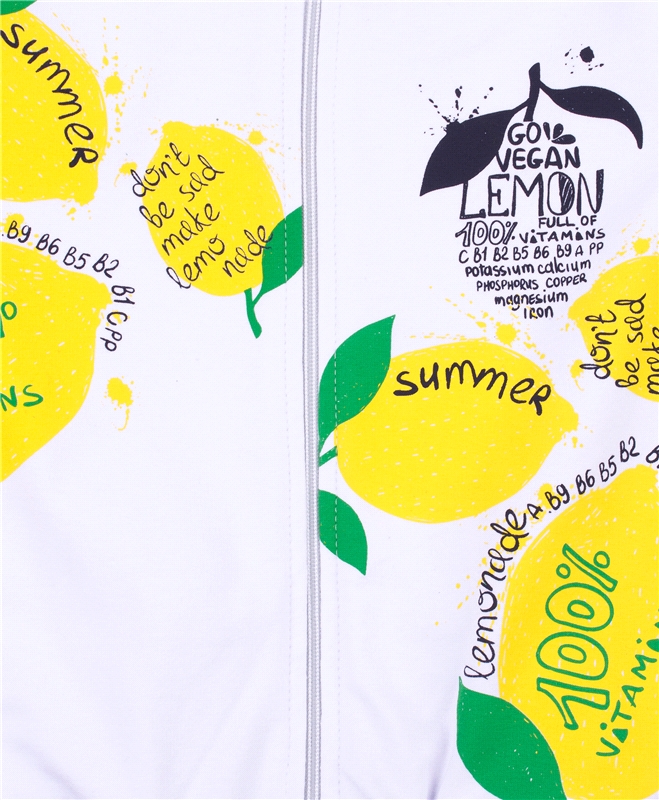 summer
don't
be sad
make
lemo nade
B9 B6 B5 B2 B1 C PP
NS
GO
VEGAN
LEMON
FULL OF
100% ViTAMiNS
C B1 B2 B5 B6 B9 A PP
potassium calcium
PHOSPHORUS COPPER
magnesium
IRON
summer
don't
be sad
make
lemonade A B9 B6 B5 B2
100%
ViTAMiN